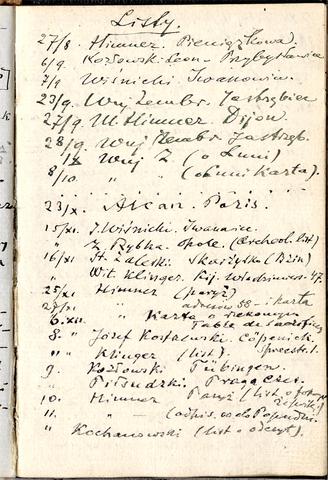 Listy.
27/8. Himner. Pieniążkowa.
6/9. Kozłowski Leon - Przybysławice
7/9 Wiśnicki. Iwanowice.
23/9. Wuj Zembr. Jastrzębiec
27/9. M. Himner. Dijon.
28/9. Wuj Zembr. Jastrzęb.
1/X Wuj Z (o Luni)
8/10. " " (o Luni karta).
23/X. Alcan. Paris.
15/XI. J. Wiśnicki. Iwanowice.
" Z. Rybka. Opole. (Archeol. list)
16/XI St. Zaleski. Skarżysko (Bzin)
" Wit. Klinger. Kij. Włodzimier. 47.
25/XI Himner (paryż)
27/XI " adresów 58 - i karta
6.XII. " Karta o
Table de
8. " Józef Kostrzewski. Cöpenick.
" " Klinger (list). Spreestr. 1.
9. Kozłowski Tübingen.
" Piłsudzki. Praga czes.
10. Himner Paryż (list o
11. " (odpis.
" Kochanowski (list o odczyt).